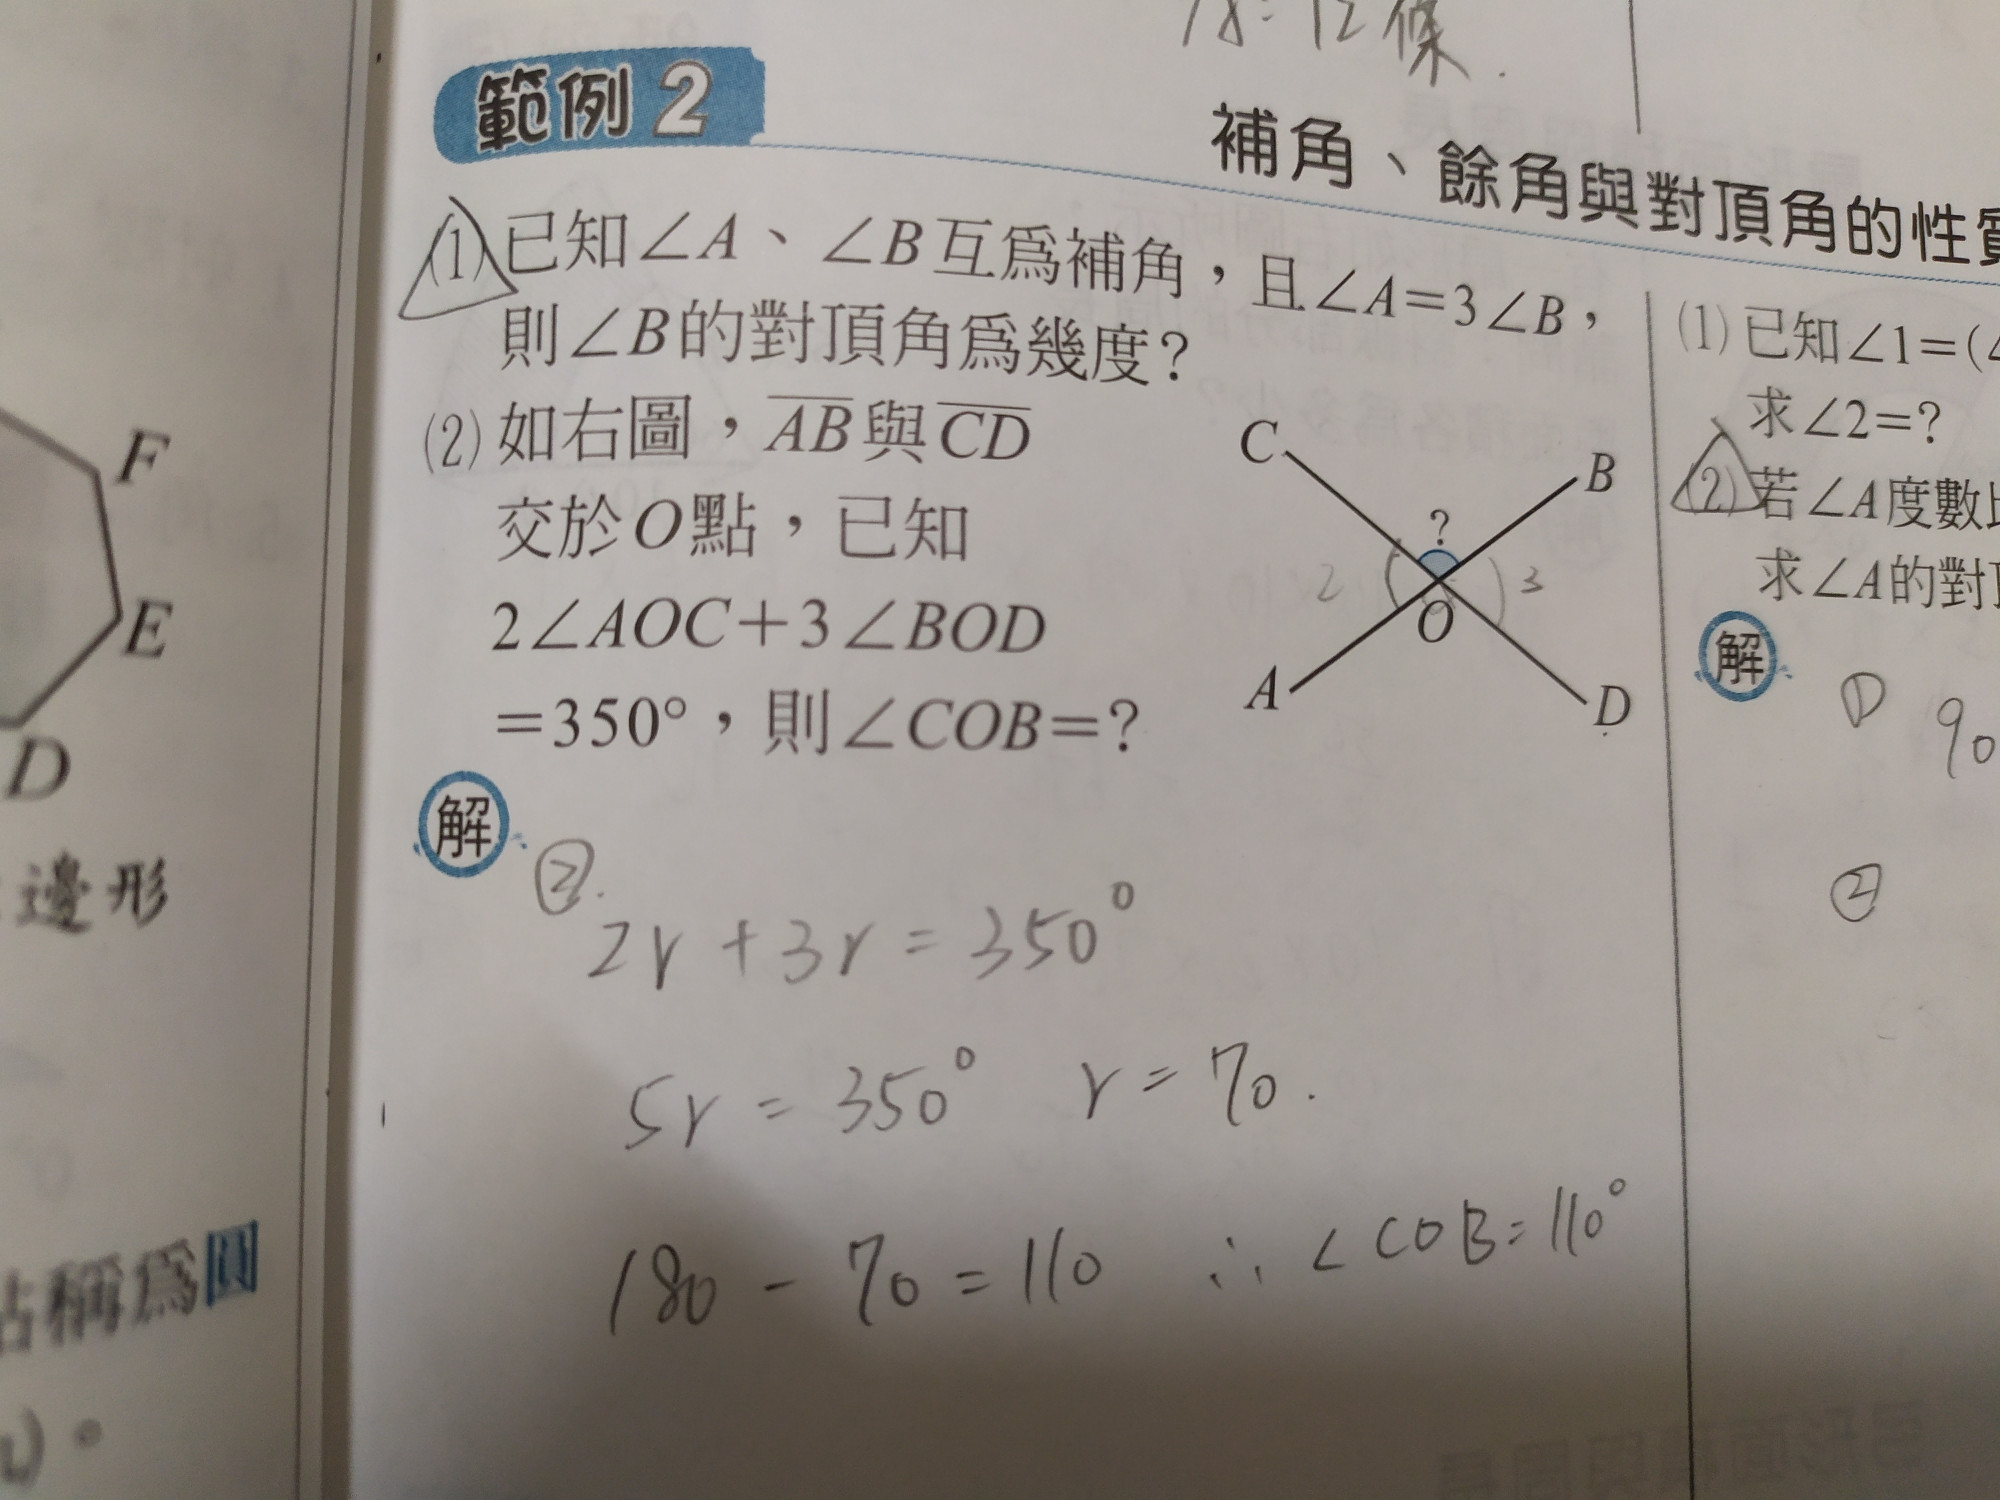 F
E
D
邊形
稱爲圓
18=12條
範例2
補角、餘角與對頂角的性質
(1)已知∠A、∠B互爲補角,且∠A=3∠B,
則∠B的對頂角爲幾度?
(2)如右圖,AB與CD
交於O點,已知
2∠AOC+3∠BOD
=350°,則∠COB=?
C
B
?
2
3
O
A
D
解
②.
2r+3r=350°
5r=350° r=70.
180-70=110 ∴∠COB=110°
(1)已知∠1=(∠
求∠2=?
(2)若∠A度數比
求∠A的對頂
解
① 90
②